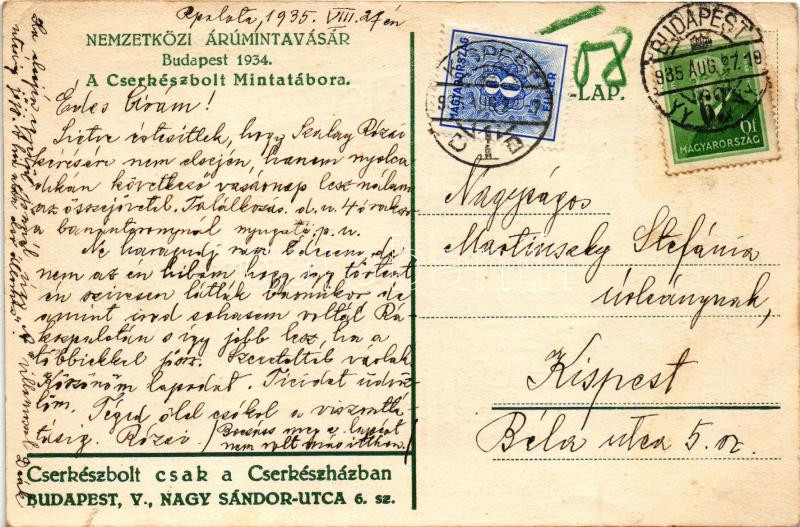 Rpalota, 1935. VIII. 27 én
NEMZETKÖZI ÁRÚMINTAVÁSÁR
Budapest 1934.
A Cserkészbolt Mintatábora.
-LAP.
MAGYARORSZÁG
8
BUDAPEST
935 AUG. 27. 19
10
MAGYARORSZÁG
Édes Cicám!
Sietve értesítlek, hogy Szalay Rózsi
kérésére nem elsején, hanem nyolca
dikán következő vasárnap lesz nálam
az összejövetel. Találkozás d. u. 4 órakor
a nyugati p. u.
Ne haragudj meg édesem, de
nem az én hibám hogy így történt
én szívesen látlak bármikor de
amint írod sohasem voltál Rá
kospalotán s így jobb lesz, ha a
többiekkel jössz. Szeretettel várlak
Köszönöm lapodat. Ticidet üdvöz
löm. Téged ölel csókol a viszontlá
tásig. Rózsi
/Bocsáss meg a lapért
nem volt más itthon./
Nagyságos
Martinszky Stefánia
úrleánynak,
Kispest
Béla utca 5. sz.
Cserkészbolt csak a Cserkészházban
BUDAPEST, V., NAGY SÁNDOR-UTCA 6. sz.